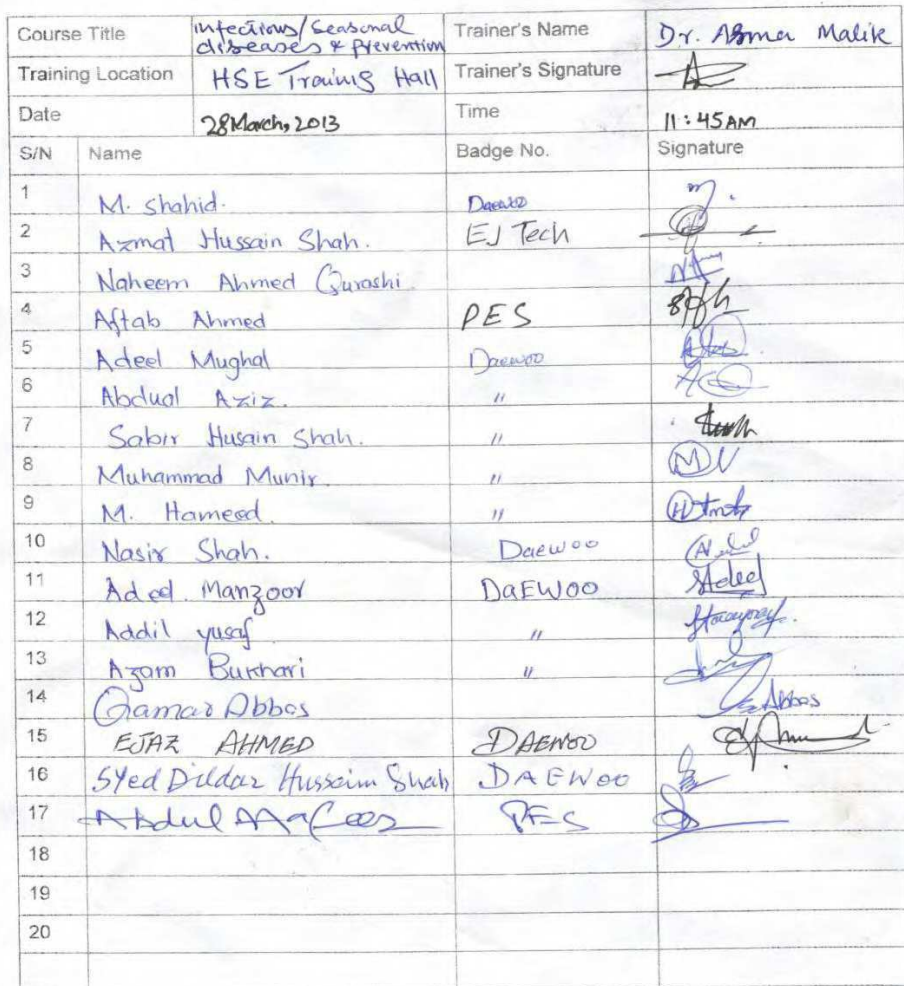 Course Title infectious/Seasonal diseases & prevention Trainer's Name Dr. Asma Malik
Training Location HSE Training Hall Trainer's Signature
Date 28 March, 2013 Time 11:45 AM
S/N Name Badge No. Signature
1 M. Shahid. Daewoo
2 Azmat Hussain Shah. EJ Tech
3 Naheem Ahmed Qurashi
4 Aftab Ahmed PES
5 Adeel Mughal Daewoo
6 Abdual Aziz. "
7 Sabir Husain Shah. "
8 Muhammad Munir. "
9 M. Hameed. "
10 Nasir Shah. Daewoo
11 Adeel Manzoor DaEWOO
12 Addil yusaf "
13 Azam Bukhari "
14 Qamar Abbas Abbas
15 EJAZ AHMED DAEWOO
16 SYed Dildar Hussain Shah DAEWOO
17 Abdul PES
18
19
20